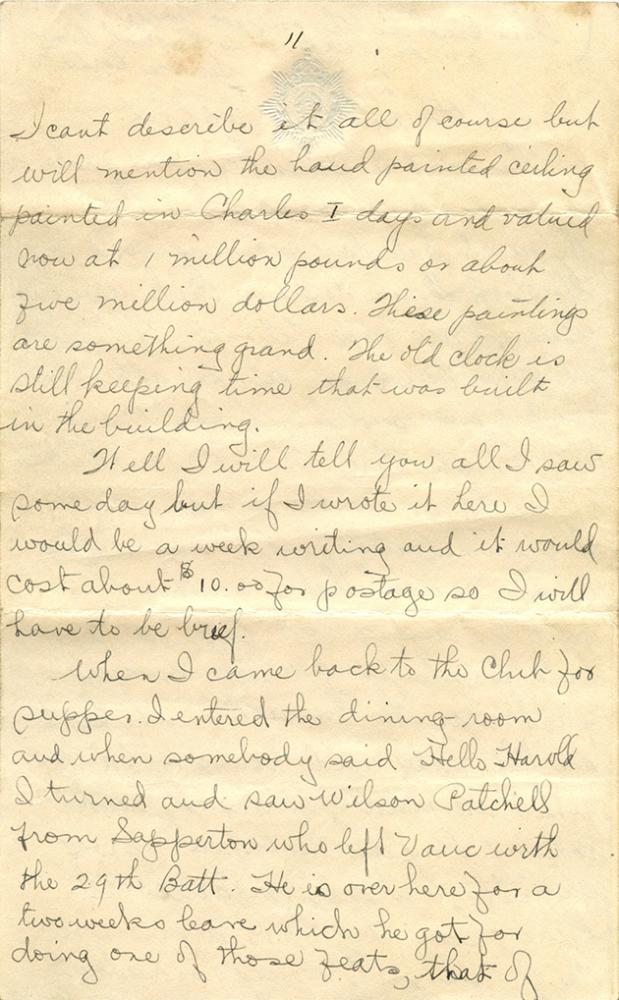 11
I cant describe it all of course but
will mention the hand painted ceiling
painted in Charles I days and valued
now at 1 million pounds or about
five million dollars. These paintings
are something grand. The old clock is
still keeping time that was built
in the building.
Well I will tell you all I saw
some day but if I wrote it here I
would be a week writing and it would
cost about $10.00 for postage so I will
have to be brief.
When I came back to the Club for
supper. I entered the dining-room
and when somebody said Hello Harold
I turned and saw Wilson Patchell
from Sapperton who left Vanc with
the 29th Batt. He is over here for a
two weeks leave which he got for
doing one of those feats, that of